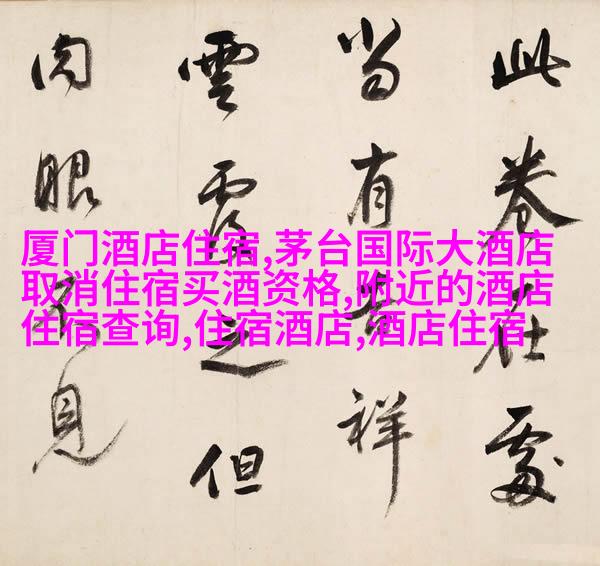 此卷在處
当有吉祥
雲覆之但
肉眼不見
厦门酒店住宿,茅台国际大酒店
取消住宿买酒资格,附近的酒店
住宿查询,住宿酒店,酒店住宿